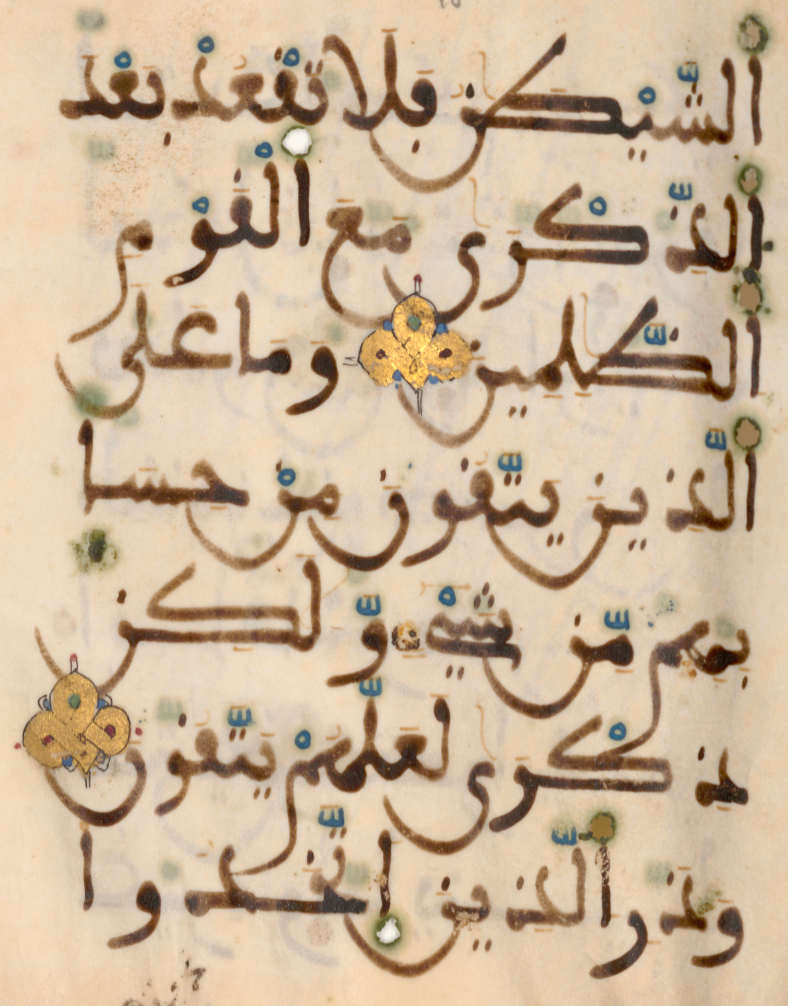 الشَّيْطَٰنُ فَلَا تَقْعُدْ بَعْدَ
الذِّكْرَىٰ مَعَ الْقَوْمِ
الظَّٰلِمِينَ وَمَا عَلَى
الَّذِينَ يَتَّقُونَ مِنْ حِسَا
بِهِم مِّن شَيْءٍ وَّلَٰكِن
ذِكْرَىٰ لَعَلَّهُمْ يَتَّقُونَ
وَذَرِ الَّذِينَ اتَّخَذُوا